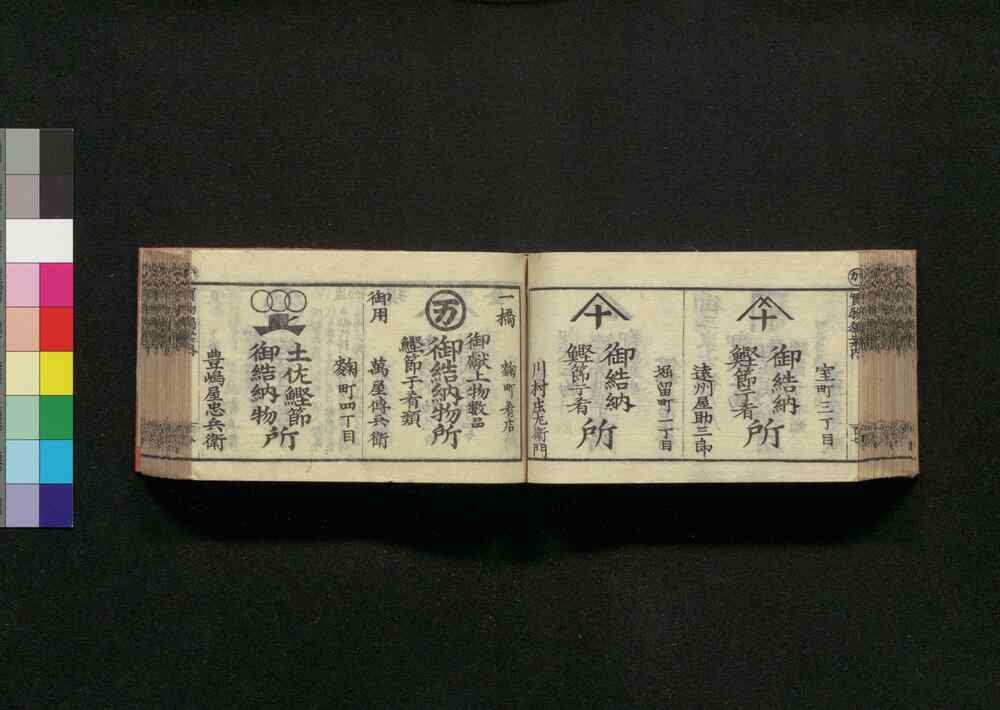 室町三丁目
御結納
鰹節干肴
所
遠州屋助三郎
堀留町二丁目
御結納
鰹節干肴
所
川村庄左衛門
一橋
麹町肴店
御献上物数品
万
御結納物所
鰹節干肴類
御用
萬屋傳兵衛
麹町四丁目
土佐鰹節
御結納物
所
豊嶋屋忠兵衛